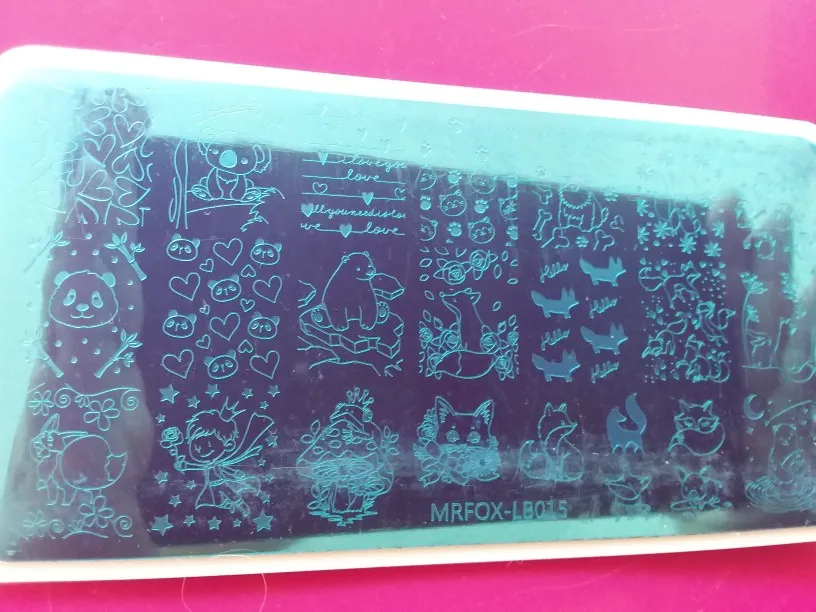 iloveyou
love
allyouneedislov
we love
Hello
Hello
Hello
Hello
Hello
Hello
MRFOX-LB015